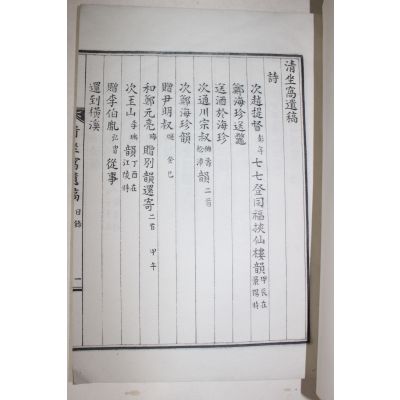 清坐窩遺稿
詩
次趙提督彭年七七登同福挾仙樓韻甲辰在景陽時
鄭海珍送鱉
送酒於海珍
次通川宗叔 二首
次鄭海珍韻
贈尹明叔 癸巳
和鄭元亮 贈別韻還寄二首 甲午
次玉山李瑀韻丁酉在江陵時
贈李伯胤 從事
還到橫溪
清坐窩遺稿 目錄 一